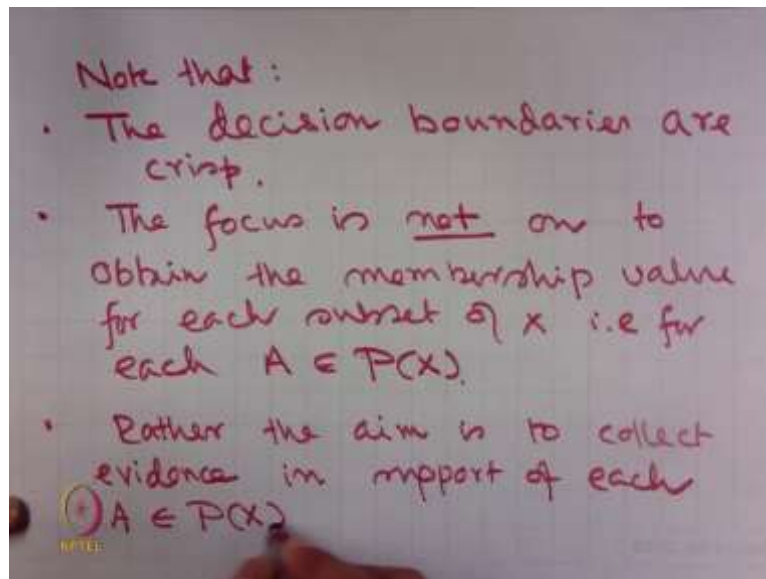 Note that:
• The decision boundaries are
crisp.
• The focus is not on to
obtain the membership value
for each subset of X i.e for
each A ∈ P(X).
• Rather the aim is to collect
evidence in support of each
A ∈ P(X)
NPTEL